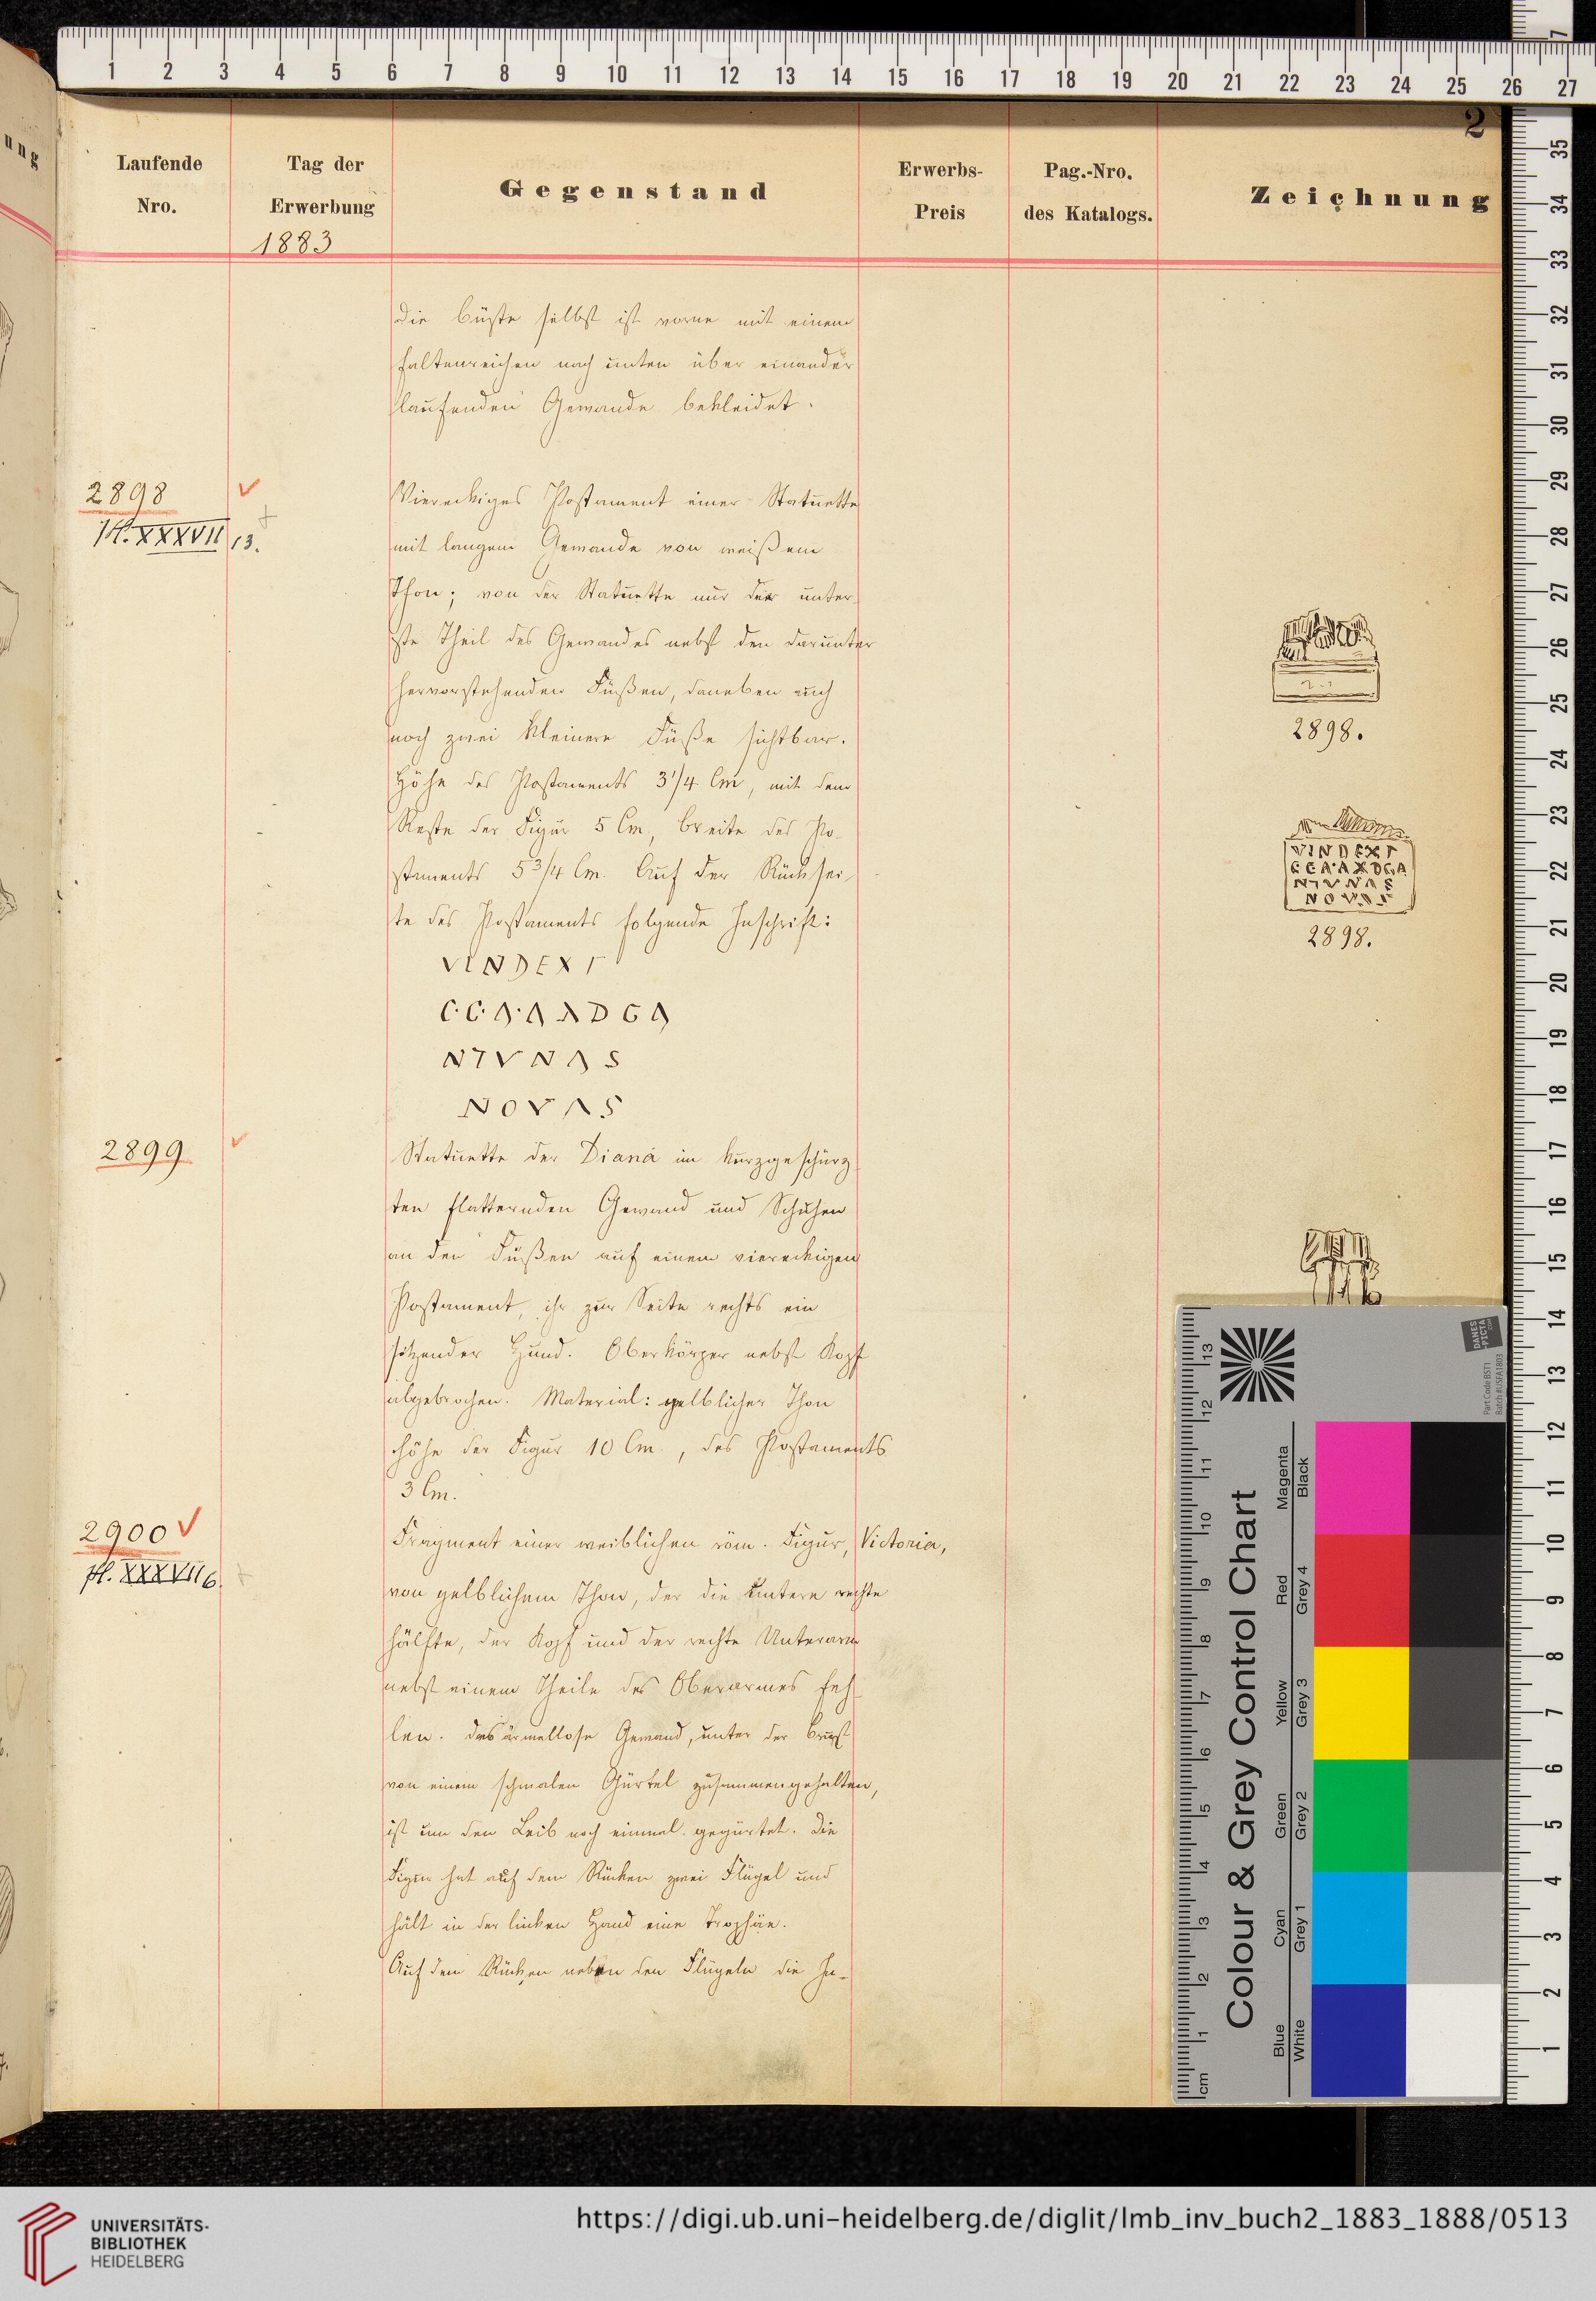 2
Laufende Nro.
Tag der Erwerbung
1883
Gegenstand
Erwerbs-Preis
Pag.-Nro. des Katalogs.
Zeichnung
die Büste selbst ist vorne mit einem
faltenreichen nach unten über einander
laufenden Gewande bekleidet.
2898
Pl. XXXVII 13.
Viereckiges Postament einer Statuette
mit langem Gewande von weißem
Thon; von der Statuette nur der unter-
ste Theil des Gewandes nebst den darunter
hervorstehenden Füßen, daneben auch
noch zwei kleinere Füße sichtbar.
Höhe des Postaments 3 1/4 Cm, mit dem
Reste der Figur 5 Cm, Breite des Po-
staments 5 3/4 Cm. Auf der Rücksei-
te des Postaments folgende Inschrift:
VINDEXF
C·C·A·A ADGA
NTVNAS
NOVAS
2898.
VINDEXF
CCAAXDGA
NTVNAS
2898.
2899
Statuette der Diana im kurzgeschürz-
ten flatternden Gewand und Schuhen
an den Füßen auf einem viereckigen
Postament, ihr zur Seite rechts ein
sitzender Hund. Oberkörper nebst Kopf
abgebrochen. Material: gelblicher Thon
Höhe der Figur 10 Cm., des Postaments
3 Cm.
2900
Pl. XXXVII 6.
Fragment einer weiblichen röm. Figur, Victoria,
von gelblichem Thon, der die untere rechte
Hälfte, der Kopf und der rechte Unterarm
nebst einem Theile des Oberarmes feh-
len. Das ärmellose Gewand, unter der Brust
von einem schmalen Gürtel zusammengehalten,
ist um den Leib noch einmal gegürtet. Die
Figur hat auf dem Rücken zwei Flügel und
hält in der linken Hand eine Trophäe.
Auf dem Rücken neben den Flügeln die In-
Colour & Grey Control Chart
Blue Cyan Green Yellow Red Magenta
White Grey 1 Grey 2 Grey 3 Grey 4 Black
cm 1 2 3 4 5 6 7 8 9 10 11 12 13
DANES PICTA .COM
Part Code BST1
1 2 3 4 5 6 7 8 9 10 11 12 13 14 15 16 17 18 19 20 21 22 23 24 25 26 27
35 34 33 32 31 30 29 28 27 26 25 24 23 22 21 20 19 18 17 16 15 14 13 12 11 10 9 8 7 6 5 4 3 2 1
UNIVERSITÄTS-
BIBLIOTHEK
HEIDELBERG
https://digi.ub.uni-heidelberg.de/diglit/lmb_inv_buch2_1883_1888/0513